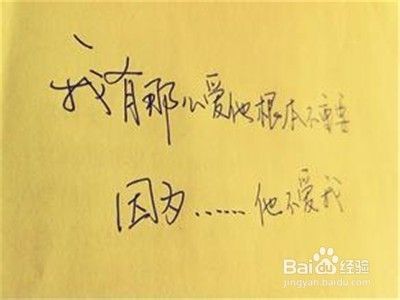 我有那么爱他根本不重要
因为……他不爱我
Baidu经验
jingyan.baidu.com